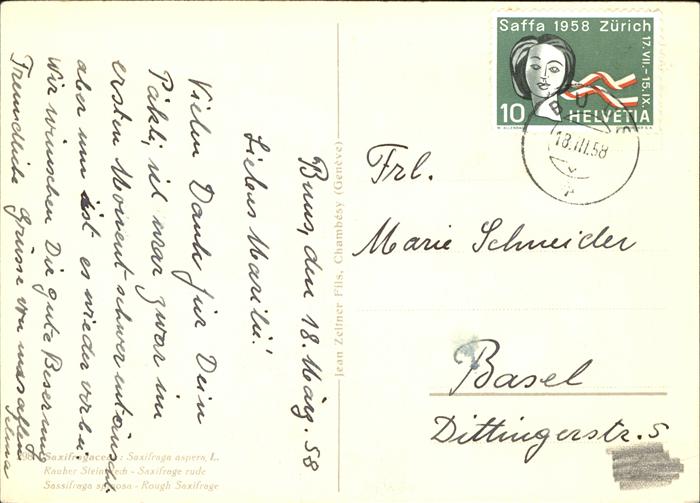 Buus, den 18. März. 58
Liebes Marili!
Vielen Dank für Dein
Päkli, ich war zwar im
ersten Moment schwer enttäuscht
aber nun ist es wieder vorbei
Wir wünschen Dir gute Besserung
Freundliche Grüsse von uns allen
Selma
Saxifragaceae: Saxifraga aspera, L.
Rauher Steinbrech - Saxifrage rude
Sassifraga spinosa - Rough Saxifrage
Jean Zeltner Fils, Chambésy (Genève)
Saffa 1958 Zürich
17.VII.-15.IX.
10 HELVETIA
BUUS
18.III.58
Frl.
Marie Schneider
Basel
Dittingerstr. 5